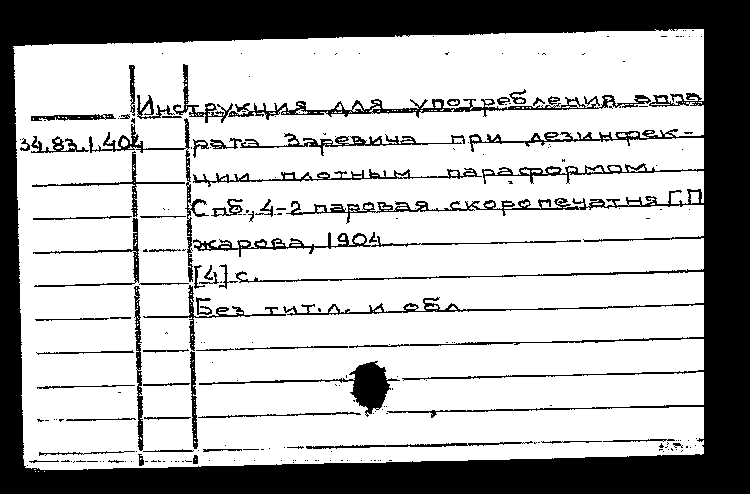 Инструкция для употребления аппа
34.83.1.404 рата Заревича при дезинфек-
ции плотным параформом.
Спб., 4-2 паровая скоропечатня Г.П
жарова, 1904
[4] с.
Без тит.л. и обл